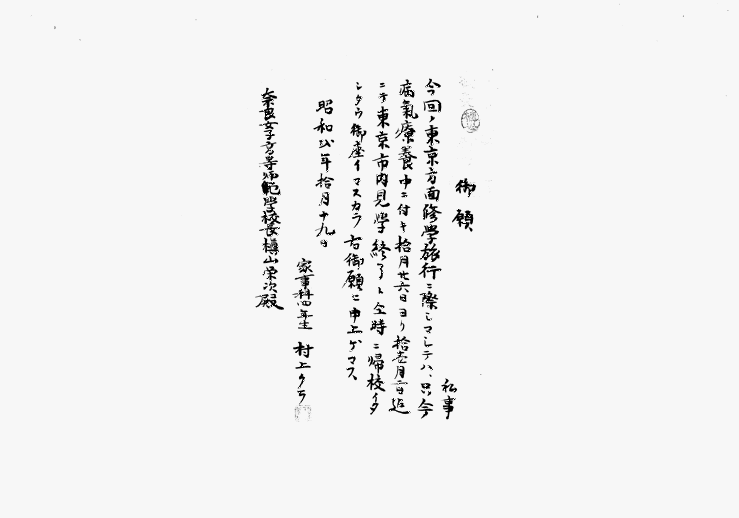 御願
私事
今回ノ東京方面修学旅行ニ際シマシテハ、只今
病気療養中ニ付キ拾月廿六日ヨリ拾壱月二日迄
ニテ東京市内見学終了ト仝時ニ帰校イタ
シタウ御座イマスカラ右御願ヒ申上ゲマス
昭和 年拾月十九日
家事科四年生 村上クラ
奈良女子高等師範学校長樟山栄次殿